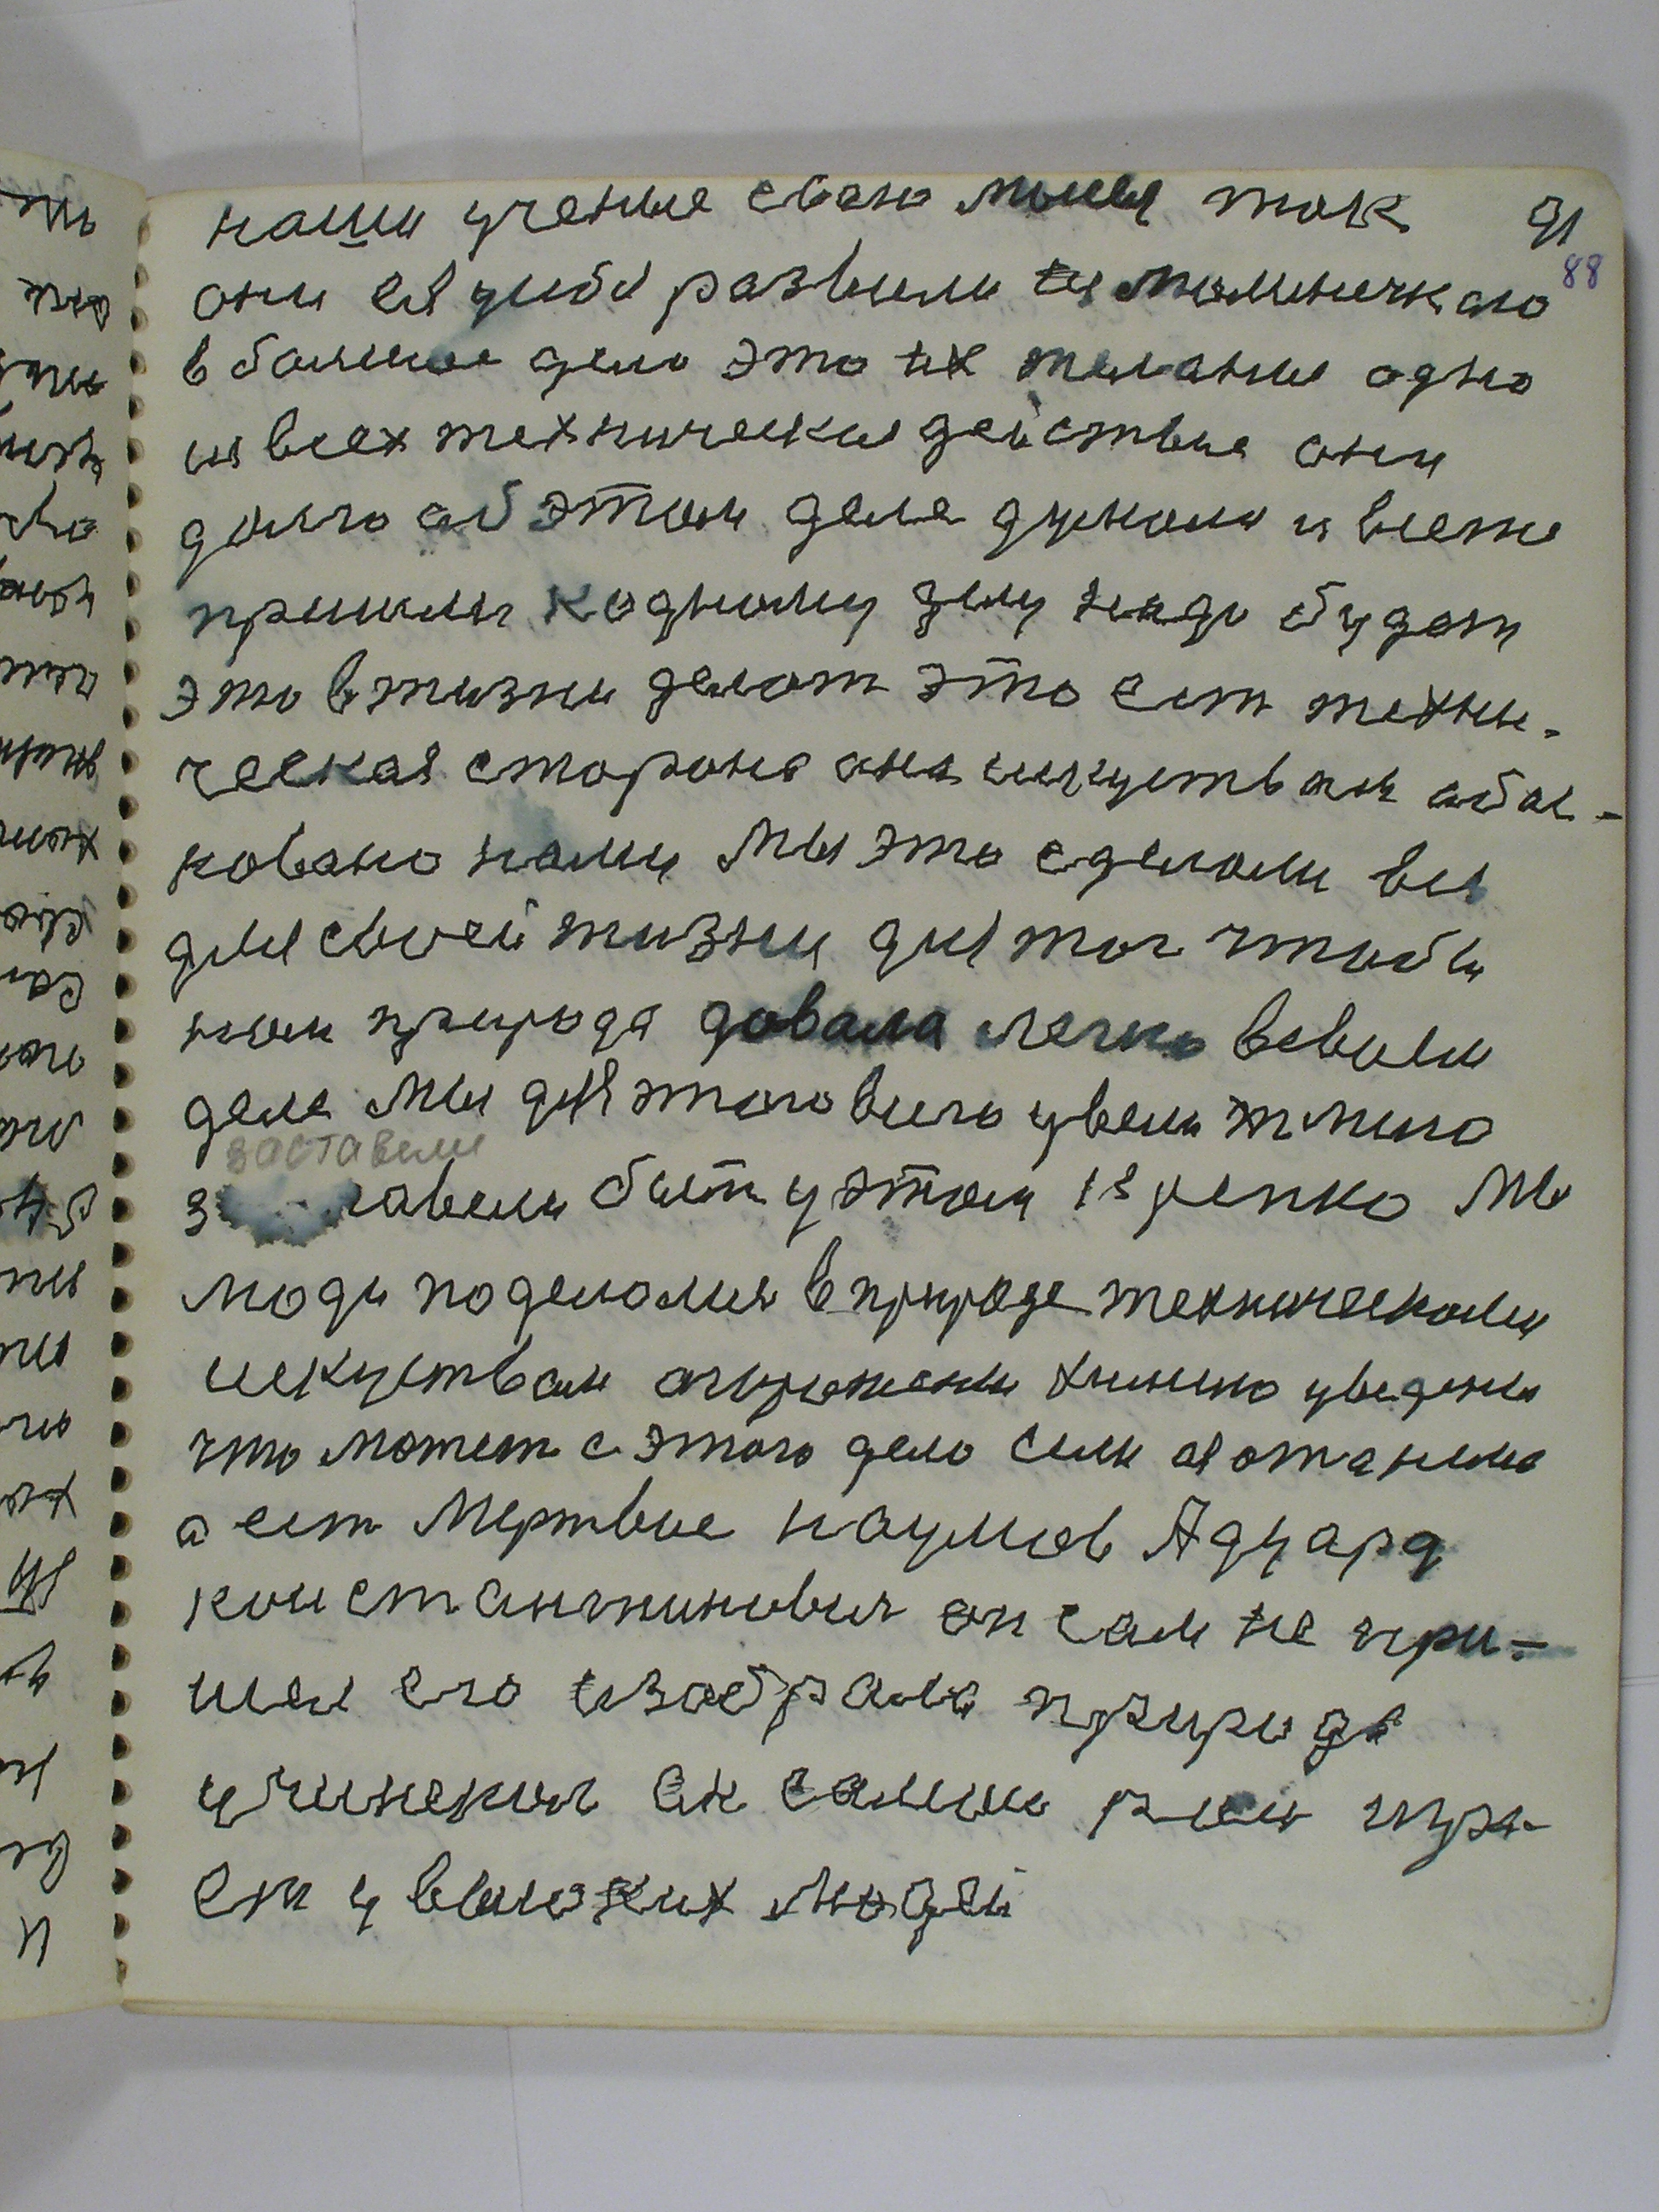 наши ученые свою мысля так 91
они ея у себя развили из маленичкаго 88
в большое дело это их желание одно
из всех техническия действие они
долго об этом деле думали и всеже
пришли кодному делу надо будет
это в жизни делат это ест техни-
ческая сторона она искуством обос-
ковано нами Мы это сделали все
для своей жизни для тог чтобы
нам природа давала легко в своем
деле Мы для этого всего увели
заставели
заставели быт у этом Мы
люди поделалися в природе техническоми
искуством огорожени химию уведени
что может с этого дело
а ест Мертвые наумов Адуард
константинович он сам не при-
шел его изобрала природа
он самыю рол игра-
ет у высоких людей